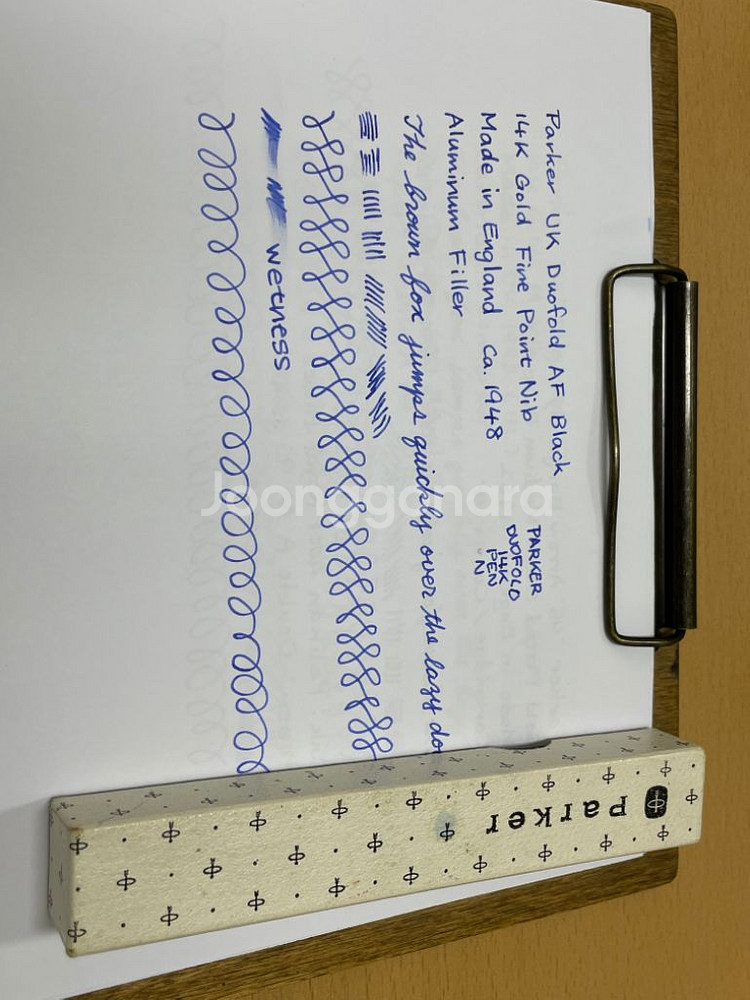 Parker UK Duofold AF Black
14K Gold Fine Point Nib
Made in England Ca. 1948
Aluminum Filler
PARKER
DUOFOLD
14K
PEN
N
The brown fox jumps quickly over the lazy do
wetness
Parker
Joonggonara